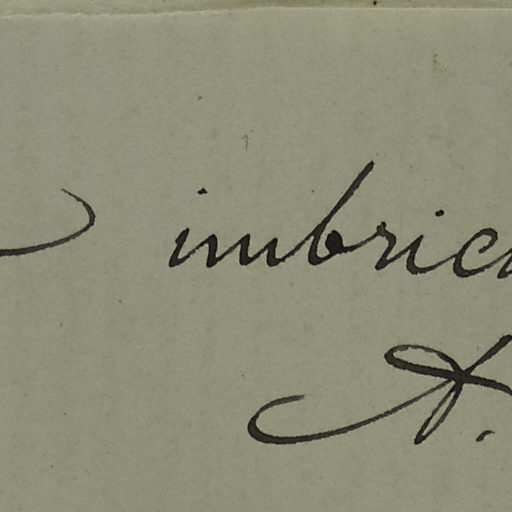 imbrica
A.